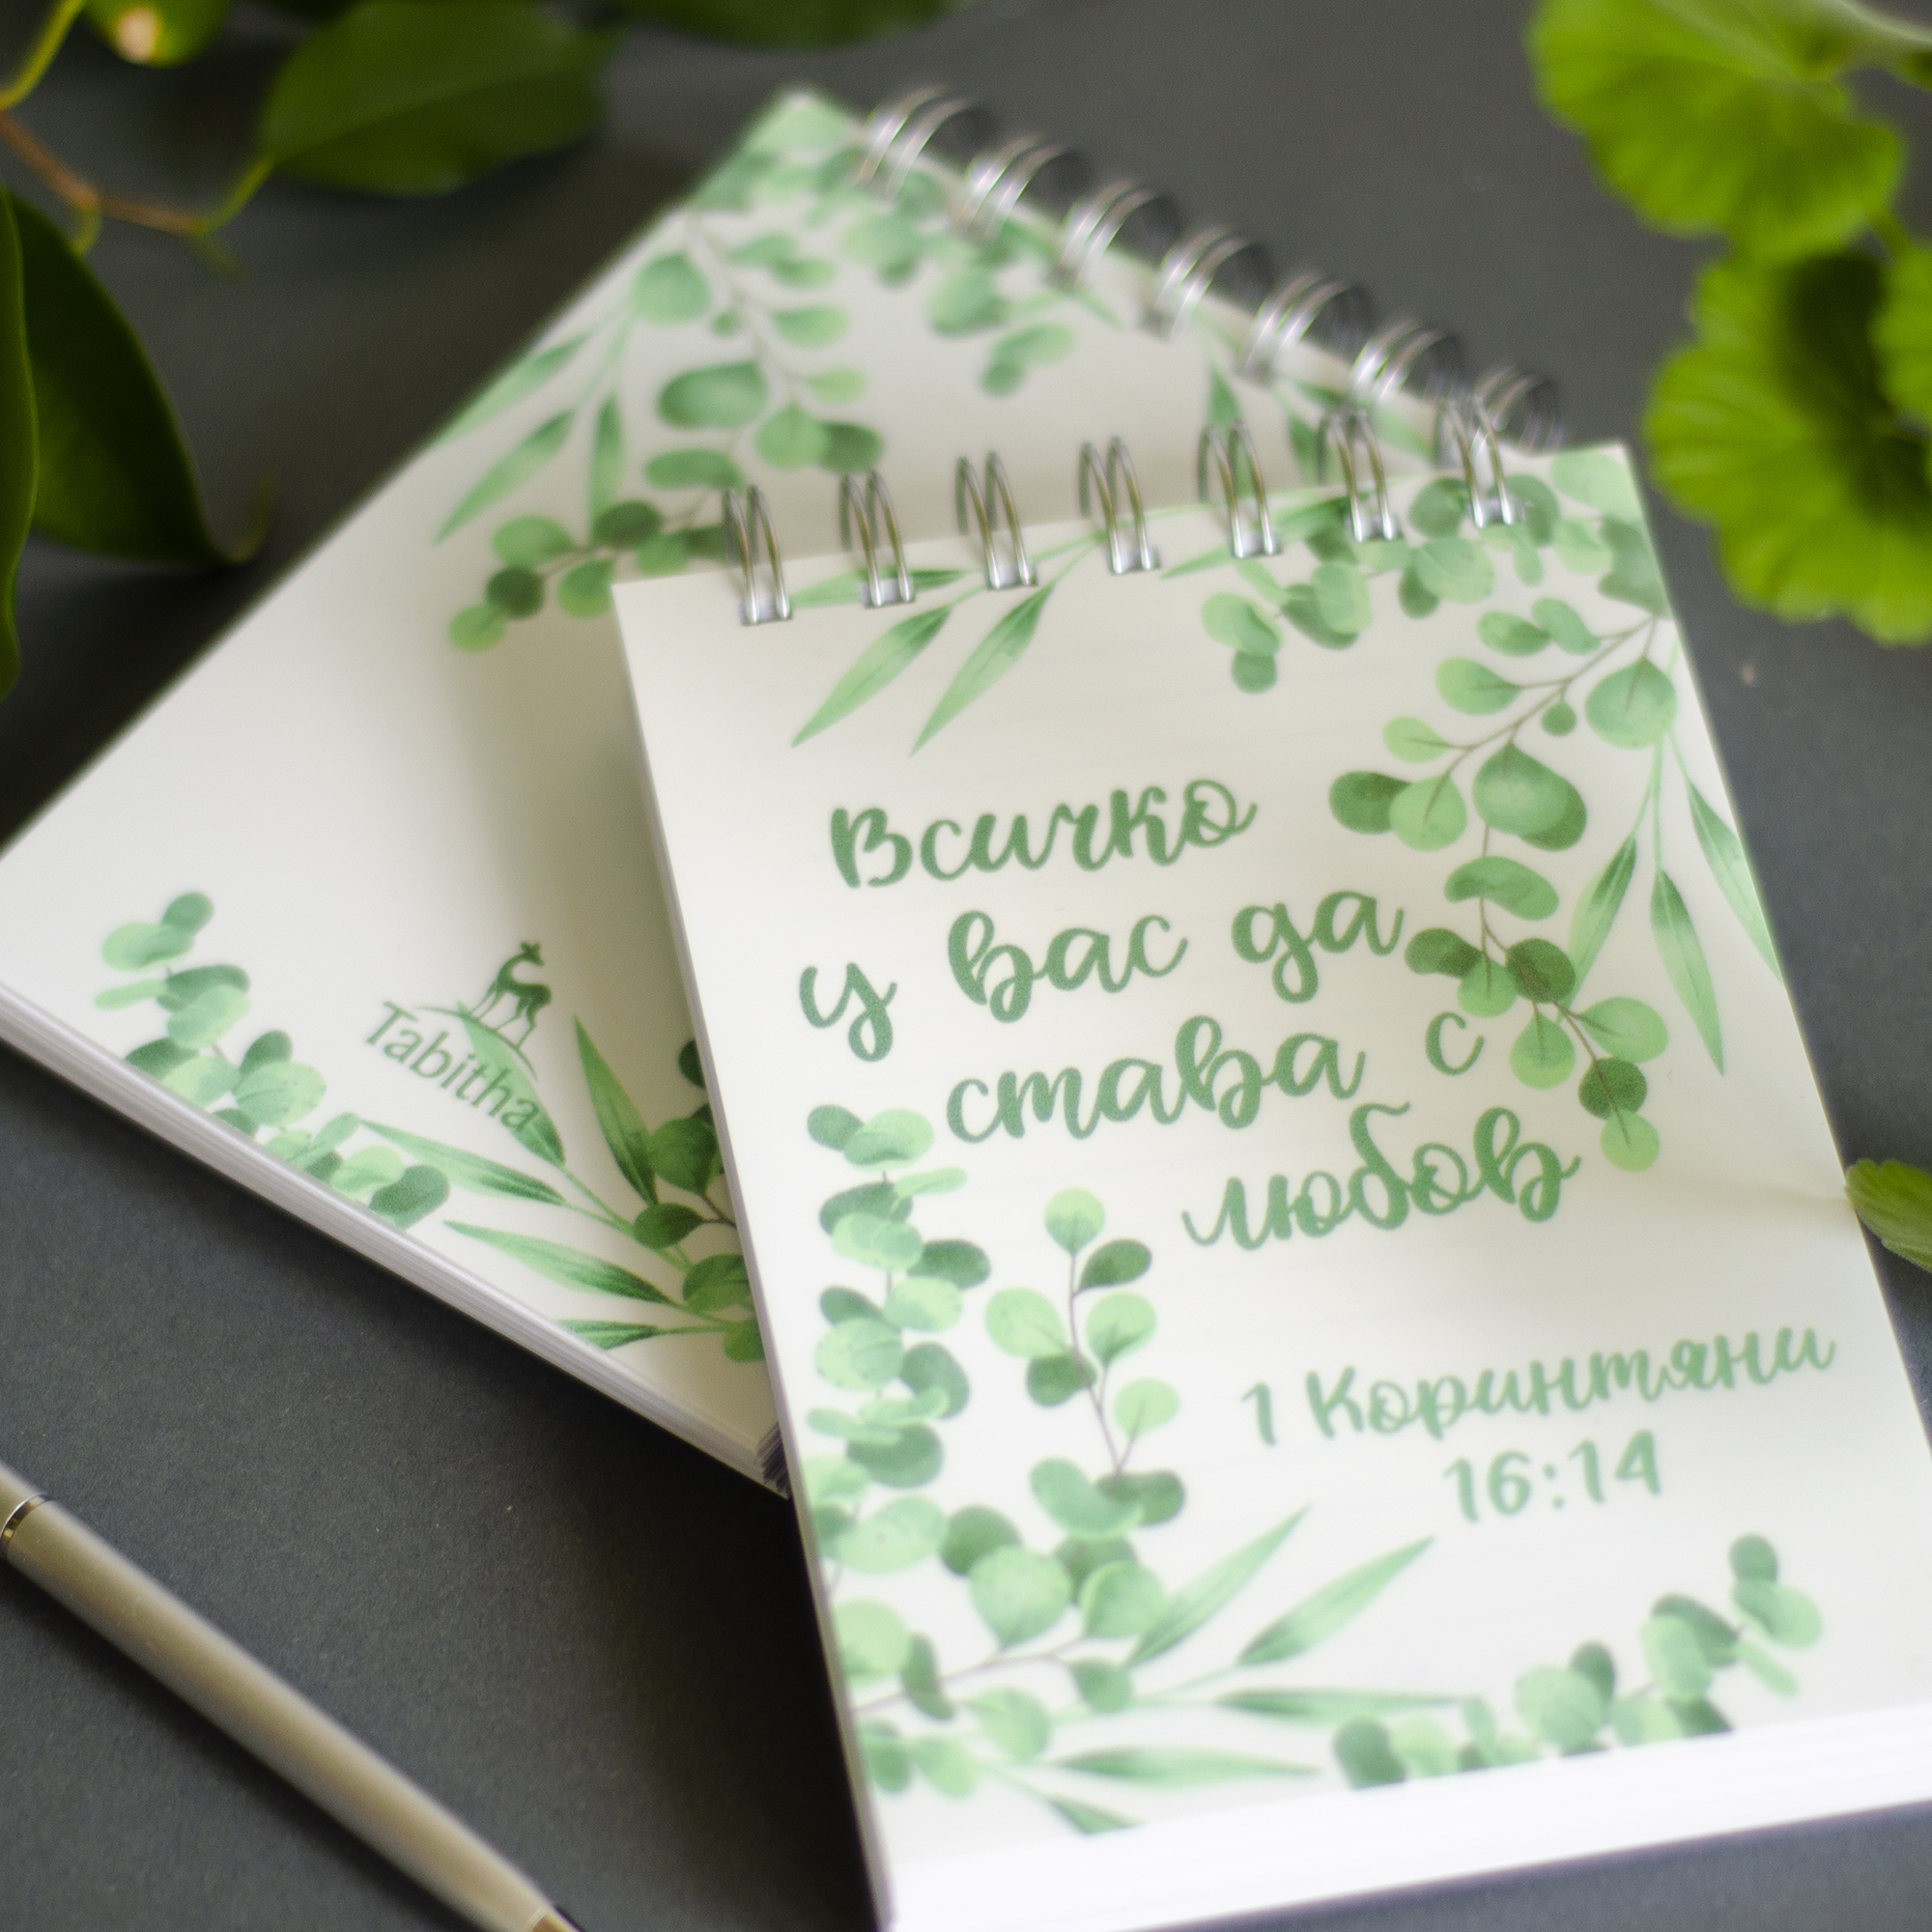 Всичко
у вас да
става с
любов
1 Коринтяни
16:14
Tabitha